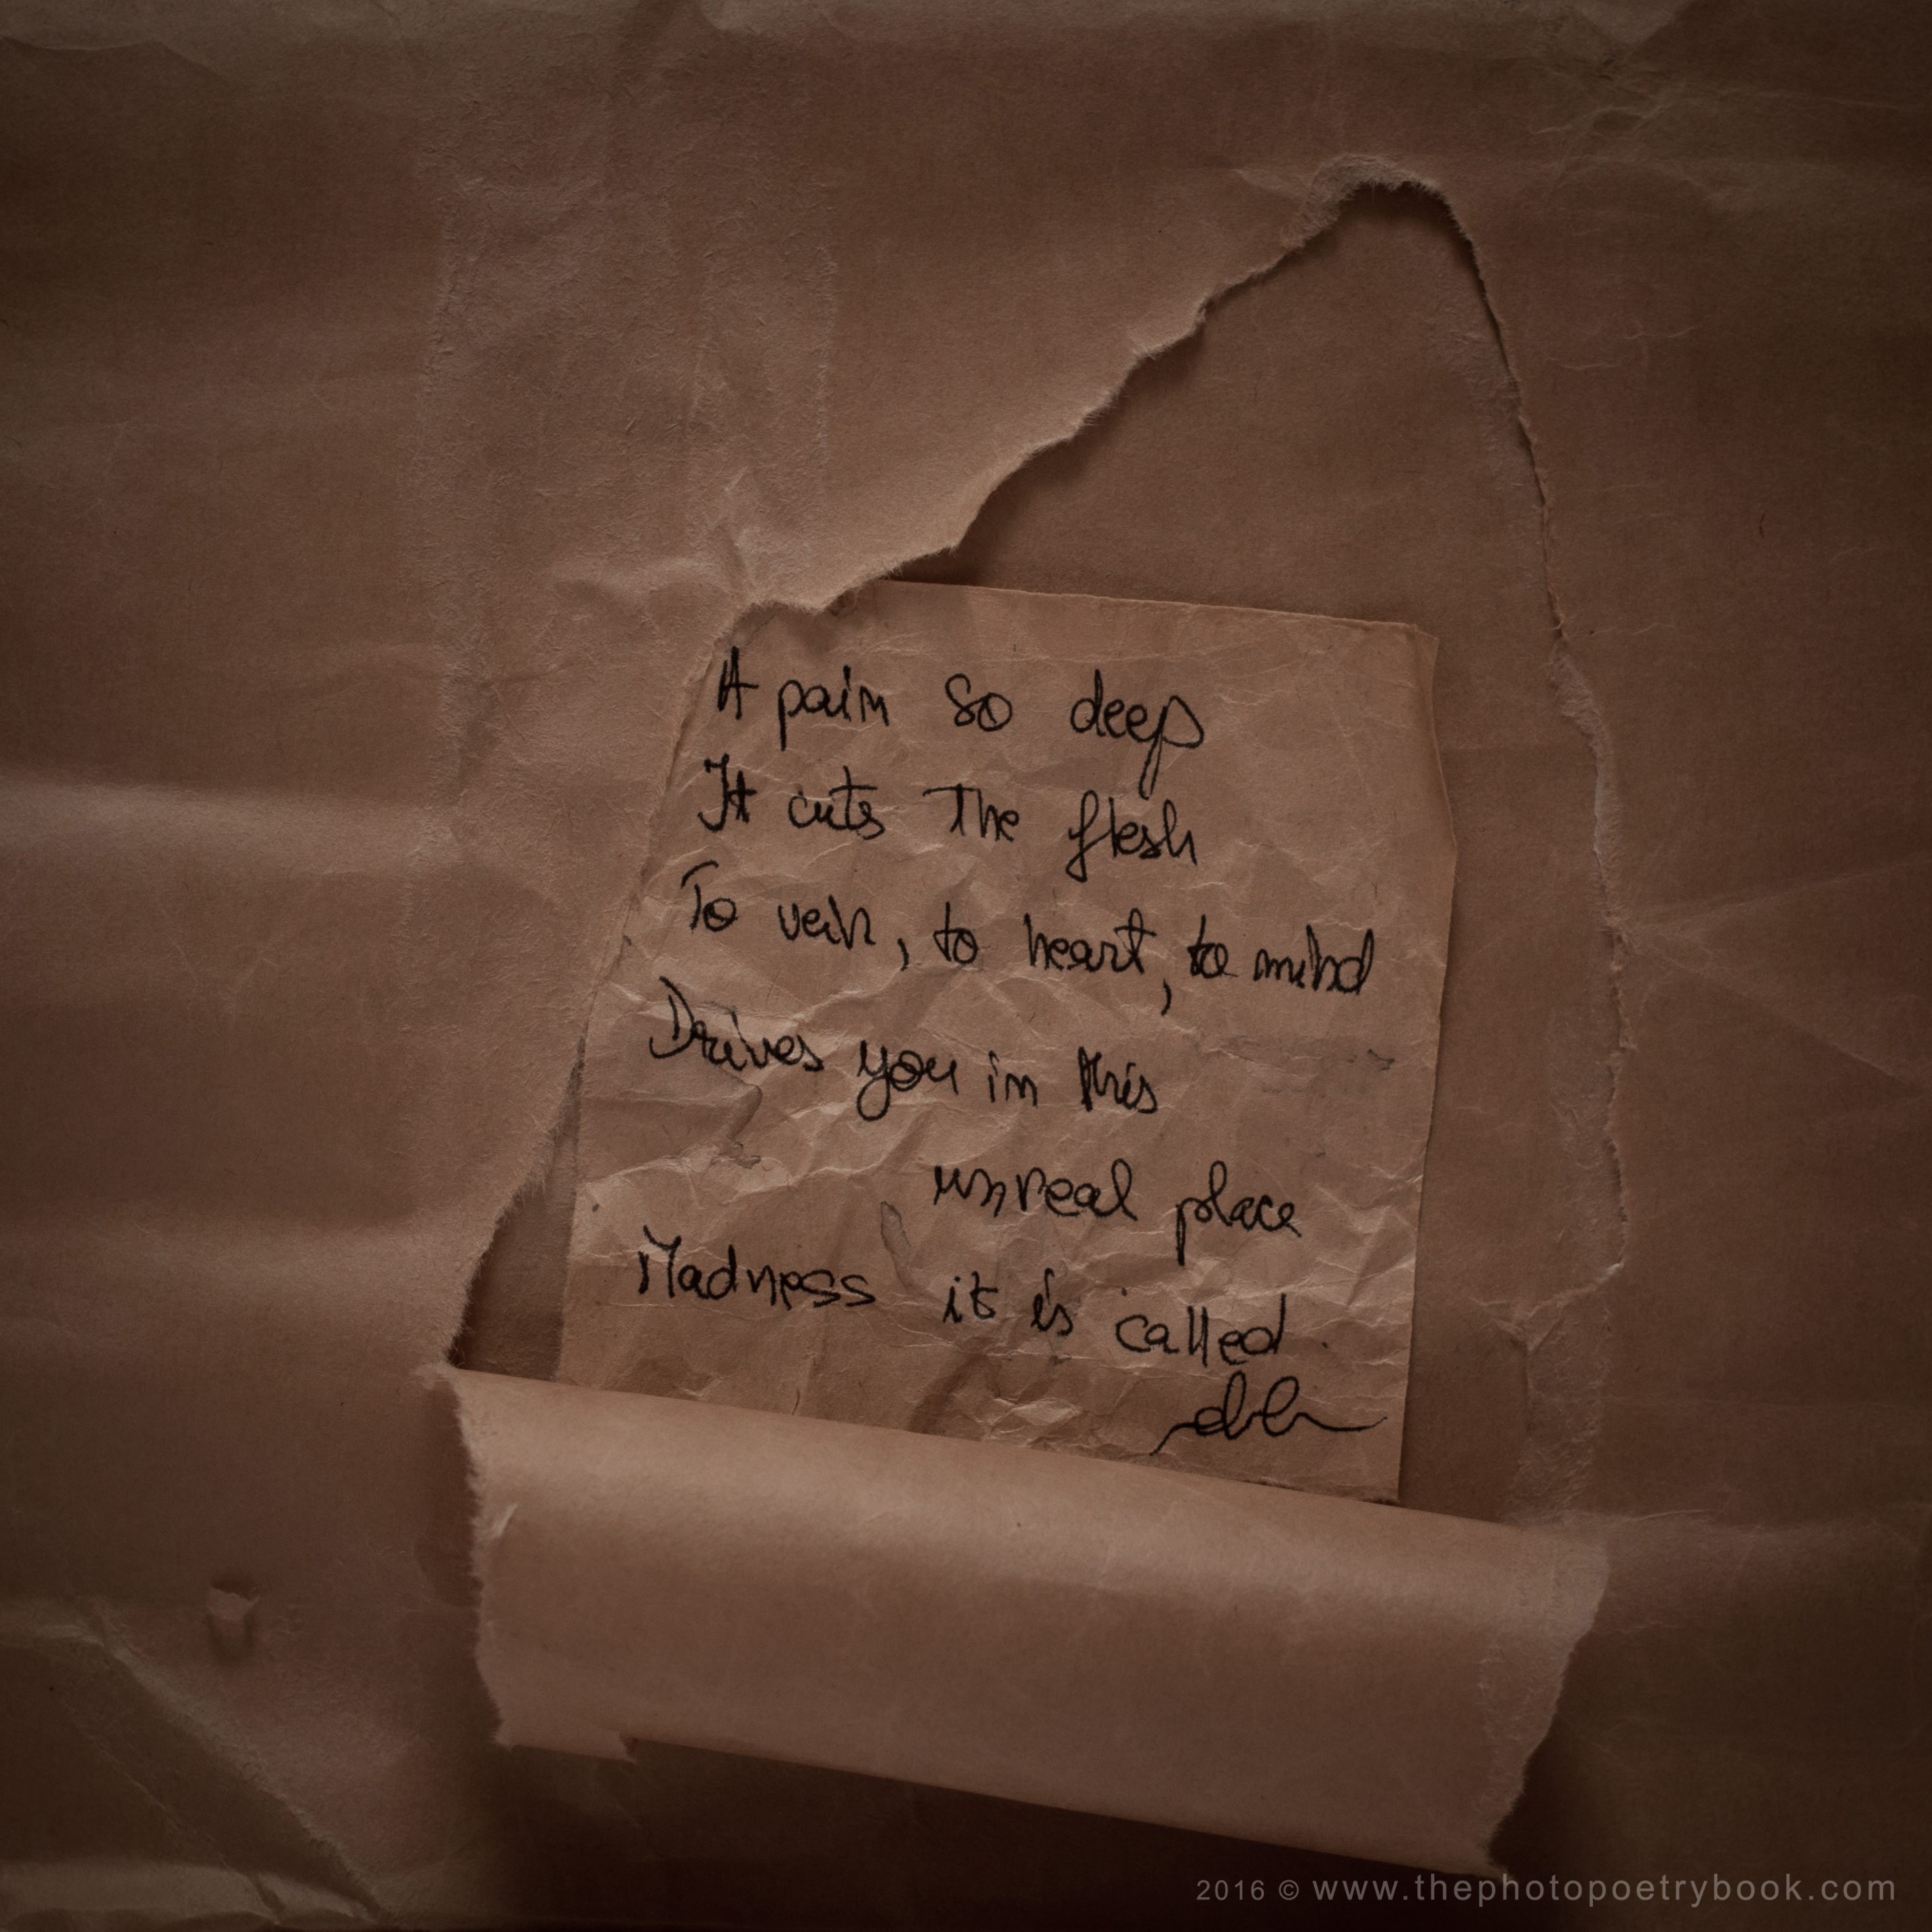 A pain so deep
It cuts The flesh
To vein, to heart, to mind
Drives you in this
unreal place
Madness it is called.
2016 © www.thephotopoetrybook.com